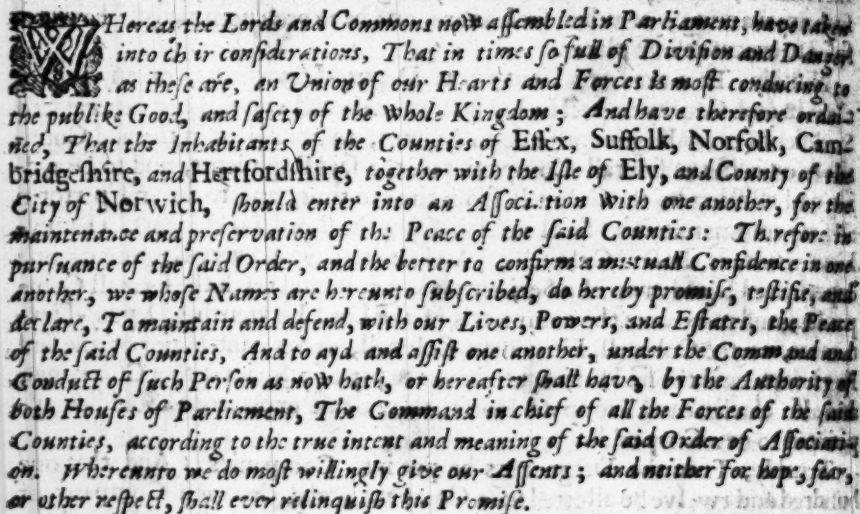 WHereas the Lords and Commons now aſſembled in Parliament, have taken
into their conſiderations, That in times ſo full of Diviſion and Danger
as theſe are, an Union of our Hearts and Forces is moſt conducing to
the publike Good, and ſafety of the whole Kingdom; And have therefore ordai-
ned, That the Inhabitants of the Counties of Eſſex, Suffolk, Norfolk, Cam-
bridgeſhire, and Hertfordſhire, together with the Iſle of Ely, and County of the
City of Norwich, ſhould enter into an Aſſociation with one another, for the
maintenance and preſervation of the Peace of the ſaid Counties: Therefore in
purſuance of the ſaid Order, and the better to confirm a mutuall Confidence in one
another, we whoſe Names are hereunto ſubſcribed, do hereby promiſe, teſtifie, and
declare, To maintain and defend, with our Lives, Powers, and Eſtates, the Peace
of the ſaid Counties, And to ayd and aſſiſt one another, under the Command and
Conduct of ſuch Perſon as now hath, or hereafter ſhall have, by the Authority of
both Houſes of Parliament, The Command in chief of all the Forces of the ſaid
Counties, according to the true intent and meaning of the ſaid Order of Aſſociati-
on. Whereunto we do moſt willingly give our Aſſents; and neither for hope, fear,
or other reſpect, ſhall ever relinquiſh this Promiſe.